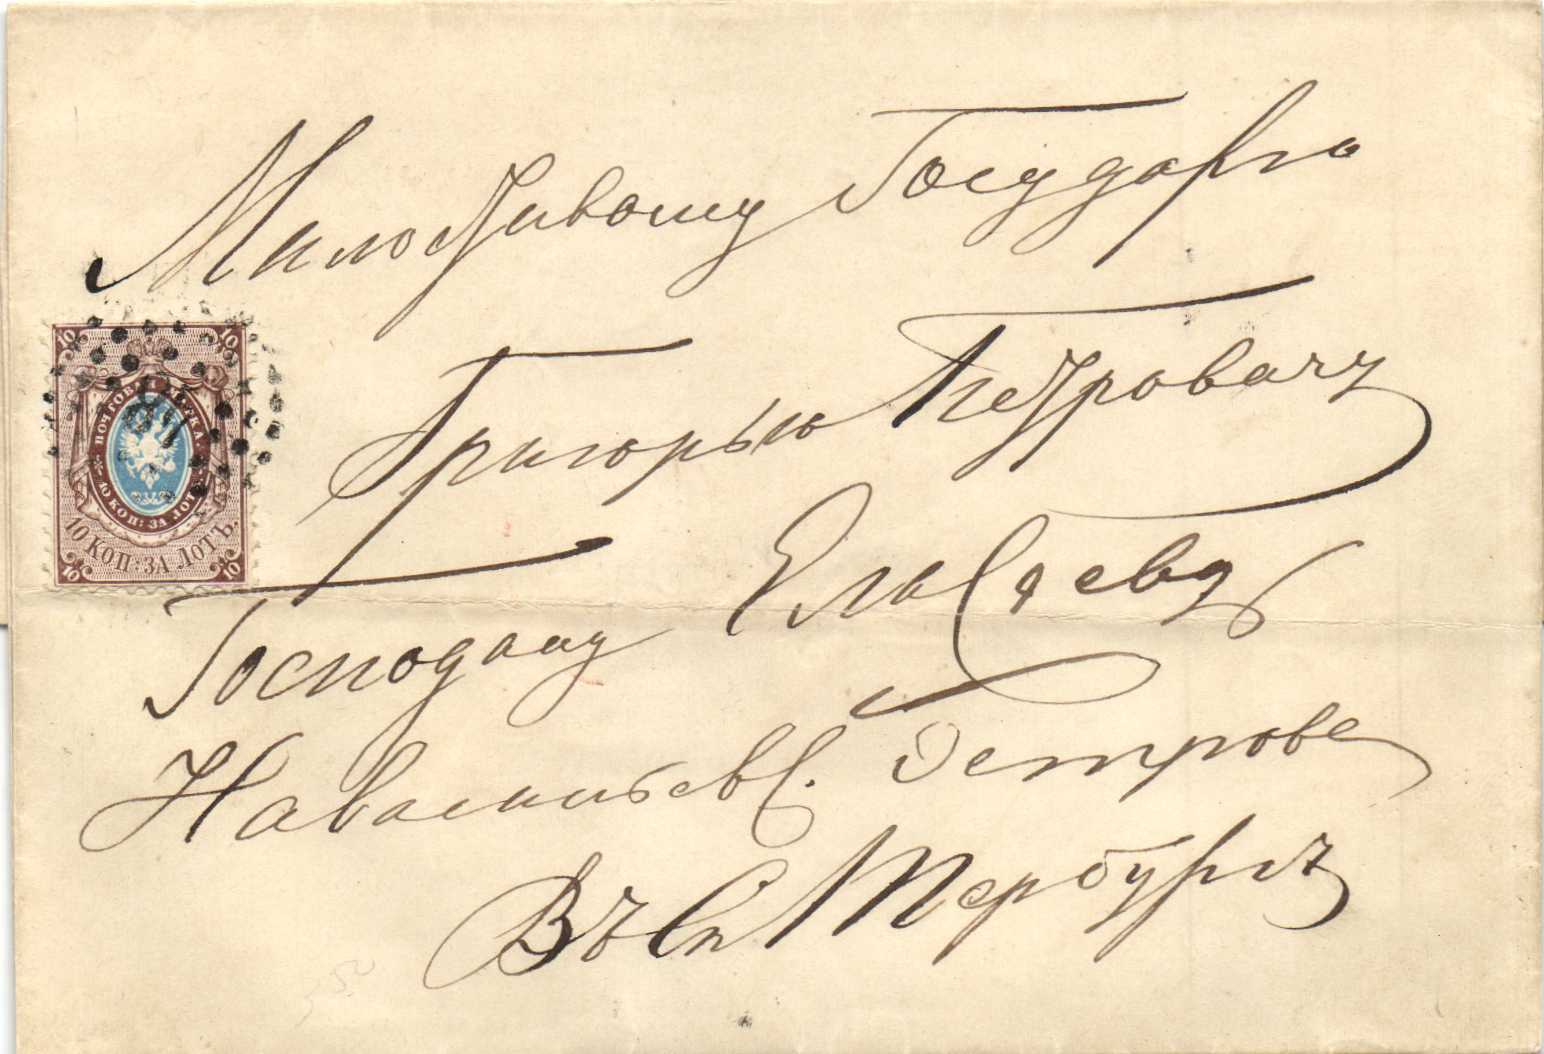 Милостивому Государю
Григорью Петровичу
Господину Елисѣеву
На васильевС. Острове
Въ Ст Петербургъ
10 10
ПОЧТОВАЯ МАРКА.
10 КОП: ЗА ЛОТЪ
10 КОП: ЗА ЛОТЪ.
10 10